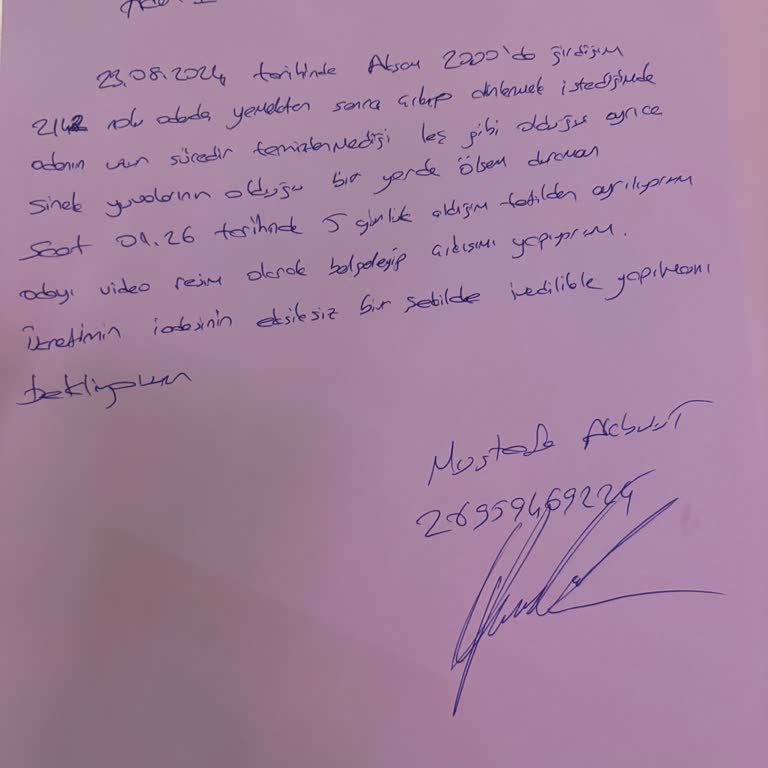 23.08.2024 tarihinde Akşam 20:00'de girdiğim
2142 nolu odada yemekten sonra çıkıp dinlenmek istediğimde
odanın uzun süredir temizlenmediği leş gibi olduğu ayrıca
sinek yuvalarının olduğu bir yerde ölsem durmam
Saat 01.26 tarihinde 5 günlük aldığım tatilden ayrılıyorum
odayı video resim olarak belgeleyip çıkışımı yapıyorum.
Ücretimin iadesinin eksiksiz bir şekilde ivedilikle yapılmasını
bekliyorum
Mustafa Akbulut
26959469224